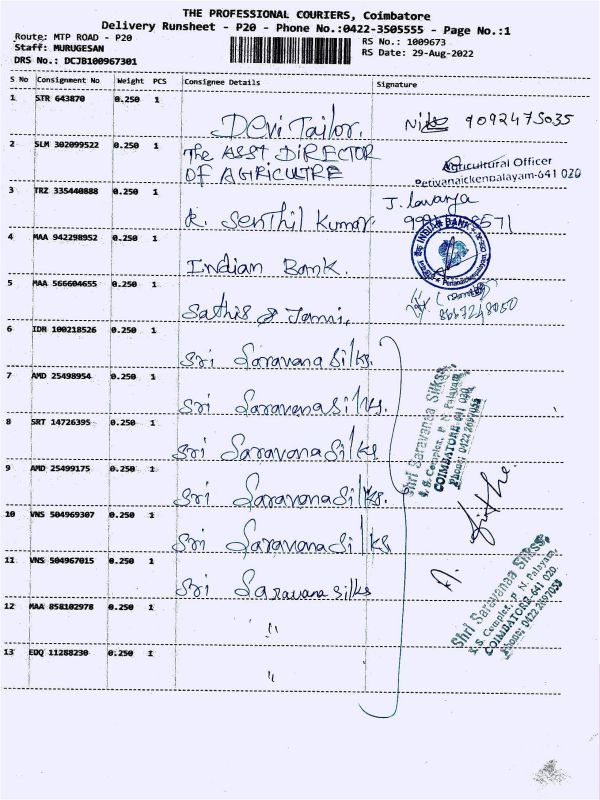 THE PROFESSIONAL COURIERS, Coimbatore
Delivery Runsheet - P20 - Phone No.:0422-3505555 - Page No.:1
Route: MTP ROAD - P20
RS No.: 1009673
Staff: MURUGESAN
RS Date: 29-Aug-2022
DRS No.: DCJB100967301
S No Consignment No Weight PCS Consignee Details Signature
1 STR 643870 0.250 1
Devi Tailor. 9092475035
2 SLM 302099522 0.250 1
The ASST. DIRECTOR
OF AGRICULTRE
Agricultural Officer
Periyanaickenpalayam-641 020
3 TRZ 335440888 0.250 1
R. Senthil Kumar. J. Lavanya
4 MAA 942298952 0.250 1
Indian Bank. INDIAN BANK
5 MAA 566604655 0.250 1
Sathis & Jamai, 8667248050
6 IDR 100218526 0.250 1
Sri Saravana Silks.
7 AMD 25498954 0.250 1
Sri Saravana Silks.
8 SRT 14726395 0.250 1
Sri Saravana Silks
9 AMD 25499175 0.250 1
Sri Saravana Silks.
10 VNS 504969307 0.250 1
Sri Saravana Silks
11 VNS 504967015 0.250 1
Sri Saravana silks
12 MAA 858102978 0.250 1
"
13 EDQ 11288230 0.250 1
"
Shri Saravanaa Silkss,
S.S. Complex, P. N. Palayam,
COIMBATORE-641 020.
Phone: 0422 2697053
Shri Saravanaa Silkss,
S.S. Complex, P. N. Palayam,
COIMBATORE-641 020.
Phone: 0422 2697053